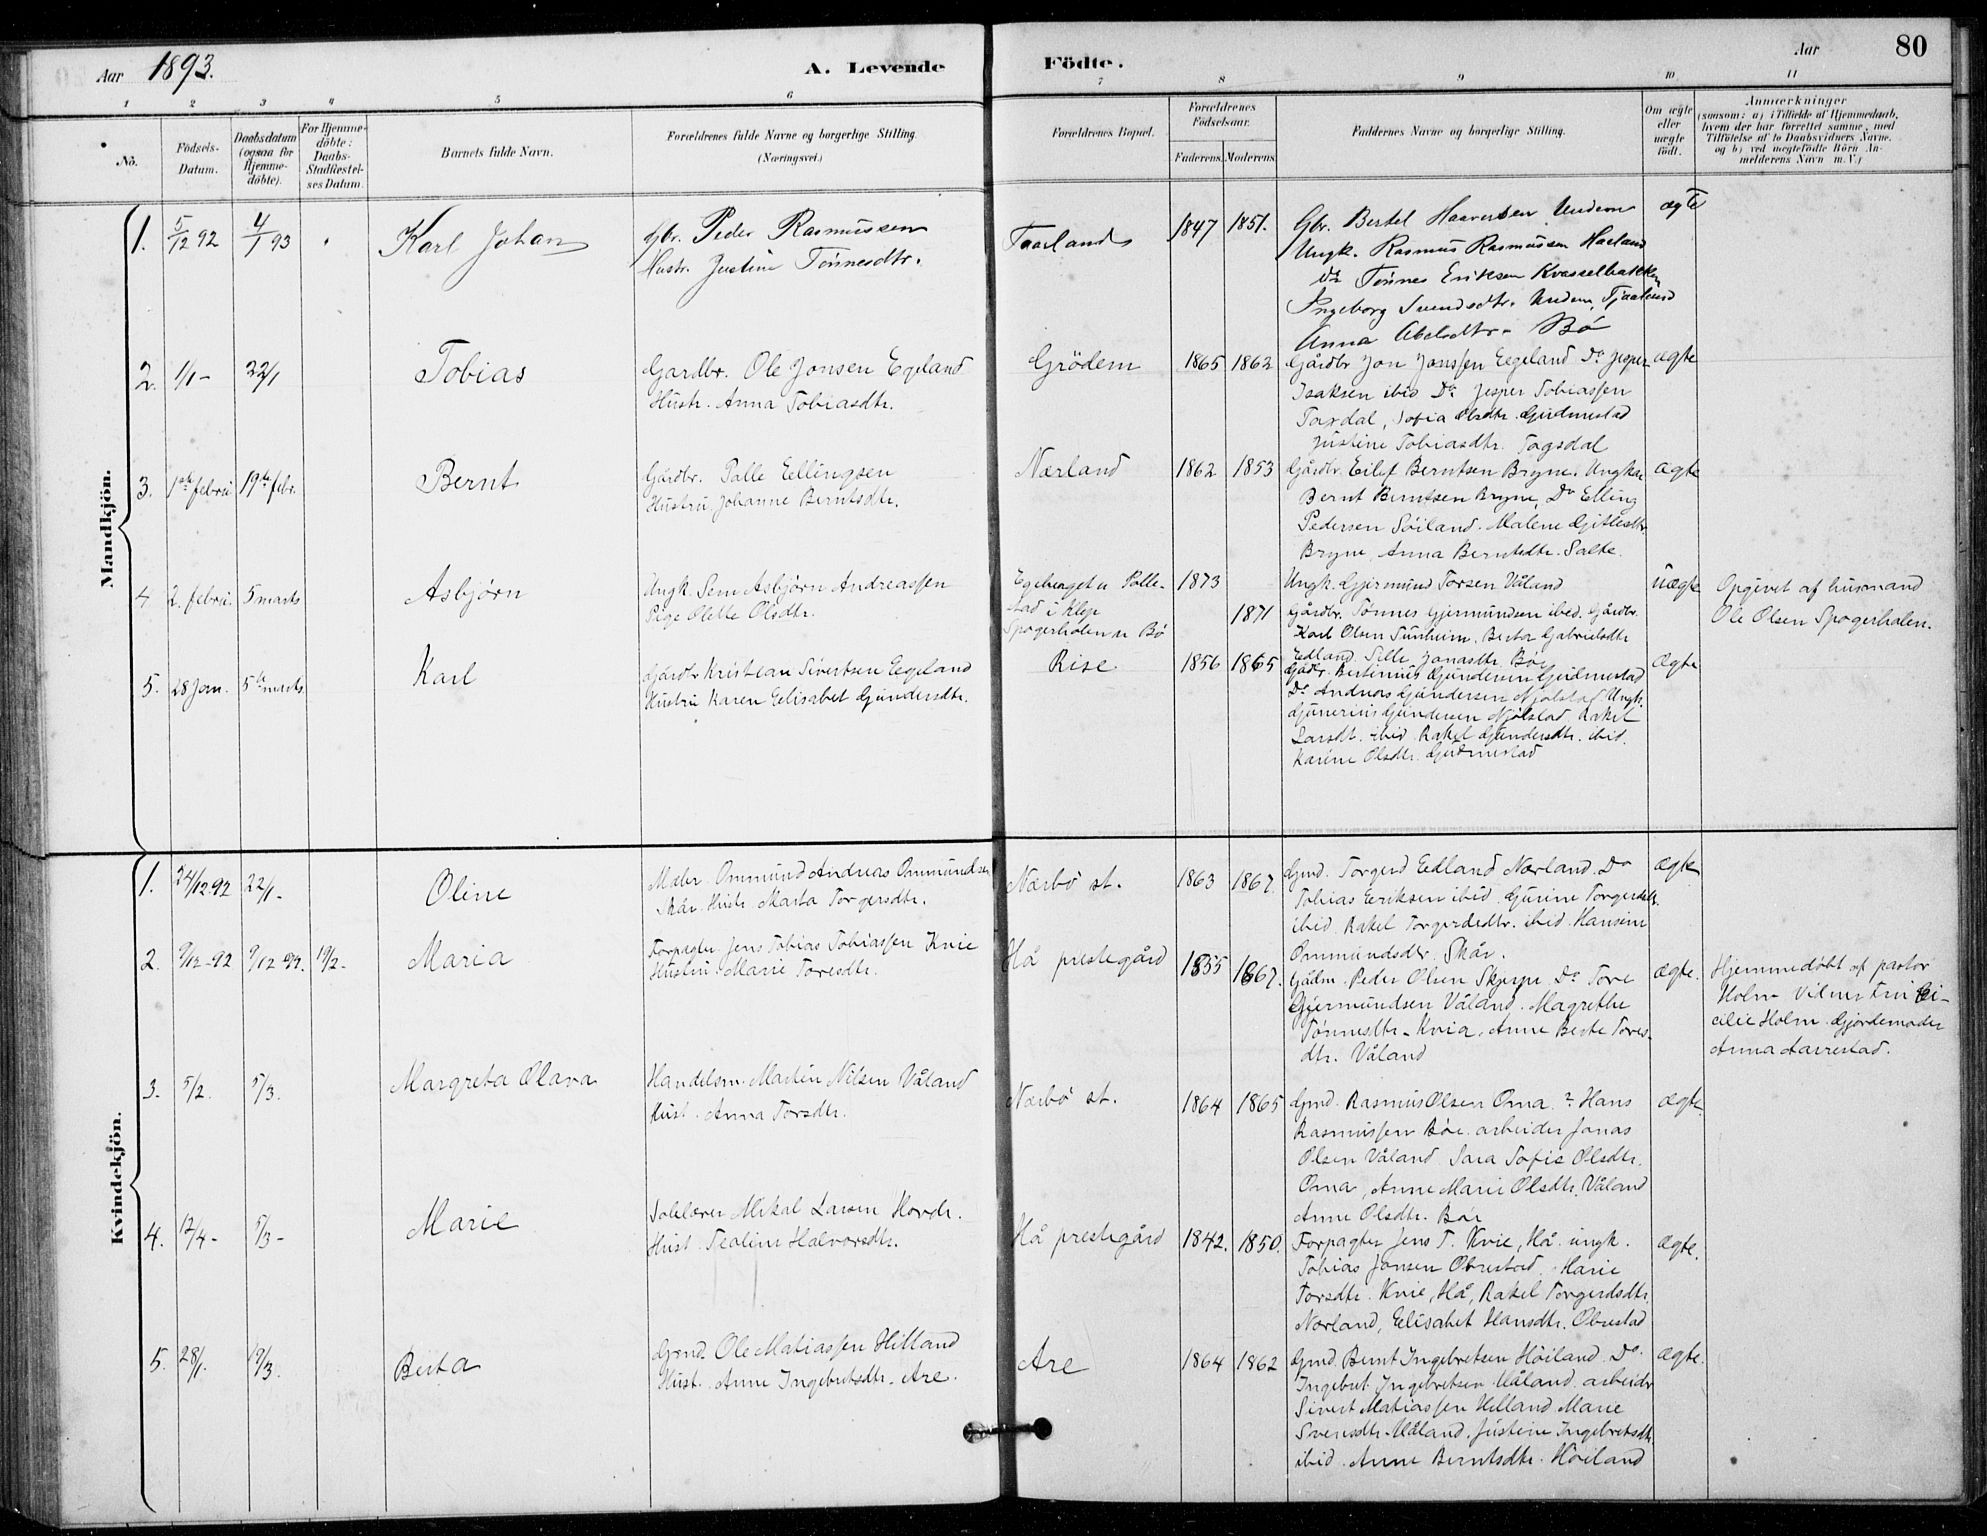 Aar 1893.
A. Levende Födte.
Aar
80
1 2 3 4 5 6 7 8 9 10 11
No.
Födsels-Datum.
Daabsdatum (ogsaa for Hjemme-döbte).
For Hjemme-döbte: Daabs-Stadfæstel-ses Datum.
Barnets fulde Navn.
Forældrenes fulde Navne og borgerlige Stilling.
(Næringsvei.)
Forældrenes Bopæl.
Forældrenes Födselsaar.
Faderens. Moderens.
Faddernes Navne og borgerlige Stilling.
Om ægte eller uægte födt.
Anmærkninger
(saasom: a) i Tilfælde af Hjemmedaab,
hvem der har forrettet samme, med
Tilföielse af to Daabsvidners Navne,
og b) ved uægtefödte Börn An-
melderens Navn m. V.)
Mandkjön.
1. 5/12 92 4/1 93 Karl Johan
Gbr. Peder Rasmussen
Hustr. Justine Tönnesdtr.
1847 1851.
Gbr. Bertel Haaversen Undem
Ungk. Rasmus Rasmussen Haaland
Do Tönnes Eriksen Kvasselbakken
Ingeborg Svendsdtr. Undem, Tjaaland
Anna Abelsdtr. Bö
ægte
2. 1/1 - 22/1 Tobias
Gardbr. Ole Jonsen Egeland
Hustr. Anna Tobiasdtr.
Grödem 1865 1862
Gårdbr Jon Jonssen Eegeland Do Jesper
Isaksen ibid Do Jesper Tobiassen
Sofia Olsdtr. Gudmestad
Justine Tobiasdtr. Tagsdal
ægte
3. 1ste febru 19de febr. Bernt
Gårdbr. Palle Eellingsen
Hustru Johanne Berntsdtr.
Nærland 1862 1853
Gårdbr. Eilef Berntsen Bryne. Ungkar
Bernt Berntsen Bryne, Do Elling
Pedersen Söiland. Malene
Bryne, Anna Berntsdtr. Salte.
ægte
4 2. febru 5 marts Asbjörn
Ungk. Sem Asbjörn Andreassen
Pige Olette Olsdtr.
Egehauget u Polle-
stad i Klep
Spogerholen u Bö
1873
1871
Ungk. Gjermund Torsen Våland
Gårdbr. Tönnes Gjermundsen ibid. Gårdbr.
Karl Olsen Tunheim, Berta Gabrielsdtr
Edland. Sille Jonasdtr. Böe
uægte
Opgivet af husmand
Ole Olsen Spogerholen.
5. 28 Jan. 5te marts Karl
Gårdbr Kristian Sivertsen Eegeland
Hustru Karen Eelisabet Gundersdtr.
Rise 1856 1865
Gårdbr. Bertinius Gundersen Gudmestad
Do Andreas Gundersen Njölstad Ungk.
Gunerius Gundersen Njölstad, Rakel
Larsdtr. ibid. Rakel Gundersdtr. ibid.
Karine Olsdtr. Gudmestad
ægte
Kvindekjön.
1. 24/12 92 22/1 - Oline
Maler Ommund Andreas Ommundsen
Skår. Hustr. Marta Torgersdtr.
Nærbö st. 1863 1867.
Gmd. Torgerd Eedland Nærland. Do
Tobias Eeriksen ibid. Gurine Torgersdtr.
ibid. Rakel Torgerdsdtr. ibid. Hansine
Ommundsdtr. Skår.
ægte
2. 9/12 - 92 9/12 92. 19/2 - Maria
Forpagter Jens Tobias Tobiassen Kvie
Hustru Marie Toresdtr.
Hå prestegård 1855 1867.
Gådm. Peder Olsen Skjerpe Do Tore
Gjermundsen Våland. Magrethe
Tönnesdtr - Kvia. Anne Berte Tores-
dtr. Våland
ægte.
Hjemmedöbt af pastor
Holm. Vidner Fru Ce-
cilie Holm. Gjordemoder
Anna Aarrestad.
3. 5/2. 5/3. Margreta Olava
Handelsm. Martin Nilsen Våland
Hust. Anna Torsdtr.
Nærbö st. 1864 1865
Gmd. Rasmus Olsen Oma. Hans
Rasmussen Böe. arbeider Jonas
Olsen Våland. Sara Sofie Olsdtr.
Oma, Anne Marie Olsdtr. Våland
Anne Olsdtr. Böe
ægte.
4. 17/4 - 5/3 - Marie
Mikal Larsen Hovdr.
Hust. Tealine Halvorsdtr.
Hå prestegård 1842. 1850.
Forpagter Jens T. Kvie, Hå. ungk.
Tobias Jonsen Obrestad. Marie
Torsdtr. Kvie, Hå, Rakel Torgerdsdtr.
Nærland, Eelisabet Hansdtr. Obrestad
ægte.
5. 28/1. 19/3. Berta
Gmd. Ole Matiassen Hilland
Hust. Anne Ingebretsdtr. Are.
Are 1864 1862
Gmd. Bernt Ingebretsen Höiland. Do.
Ingebret Ingebretsen Håland. arbeider
Sivert Matiassen Helland. Marie
Svensdtr. Håland. Justine Ingebretsdtr.
ibid. Anne Berntsdtr. Höiland
ægte.